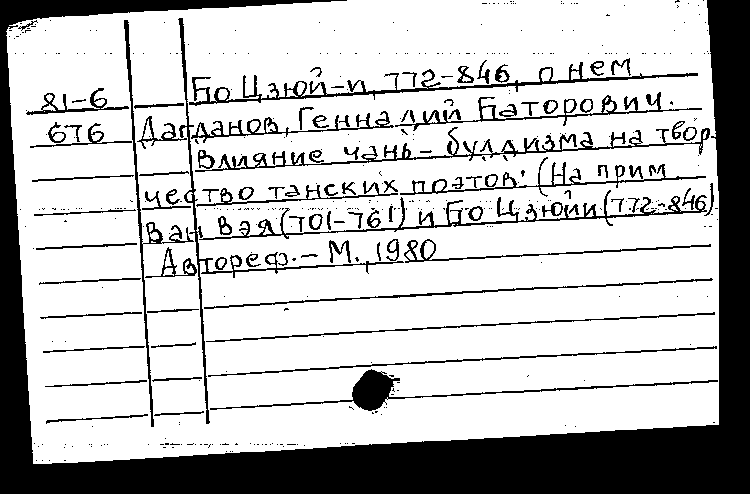 Бо Цзюй-и, 772-846, о нем.
81-6
676 Дагданов, Геннадий Баторович.
Влияние чань-буддизма на твор-
чество танских поэтов: (На прим.
Ван Вэя (701-761) и Бо Цзюйи (772-846)
Автореф. - М., 1980